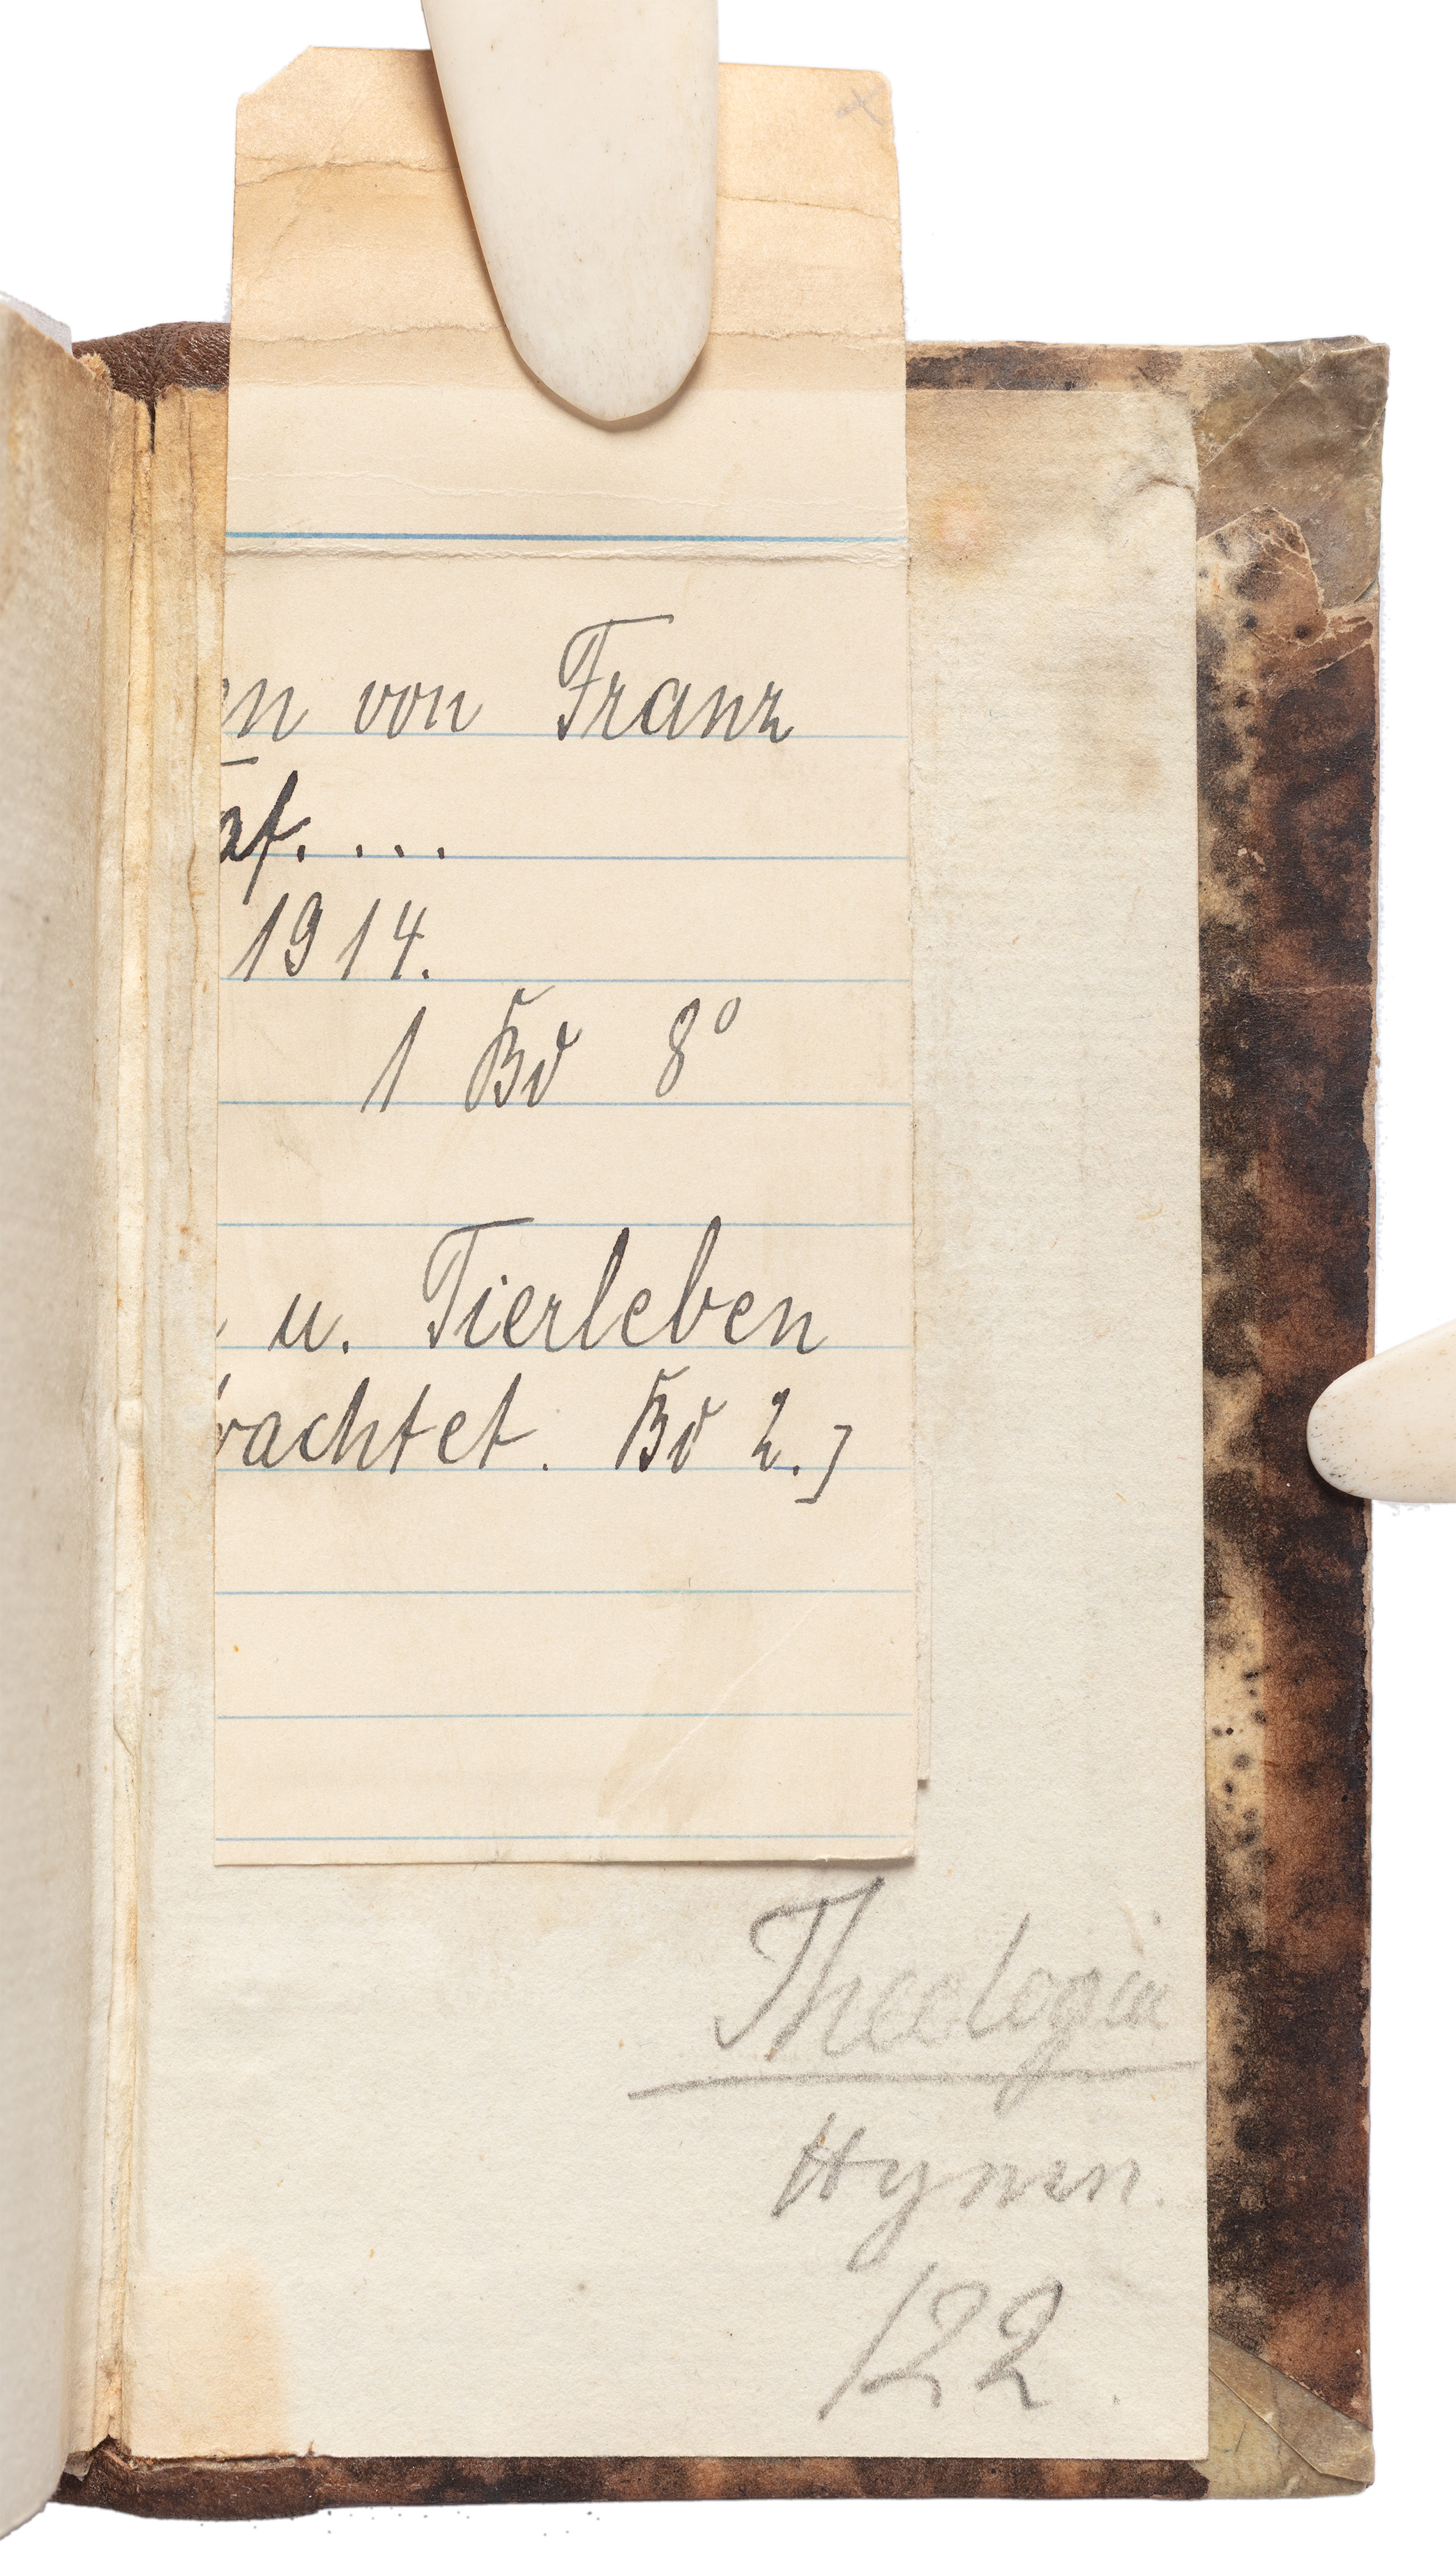 en von Franz
af. ...
1914.
1 Bd 8°
u. Tierleben
rachtet. Bd 2.]
Theologie
Hymn.
122.